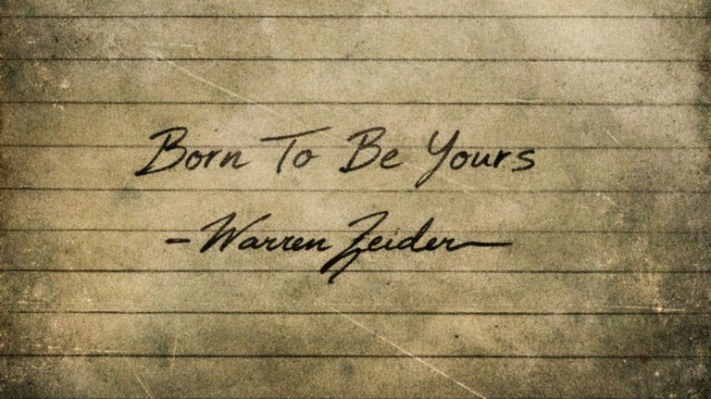 Born To Be Yours
-Warren Zeider